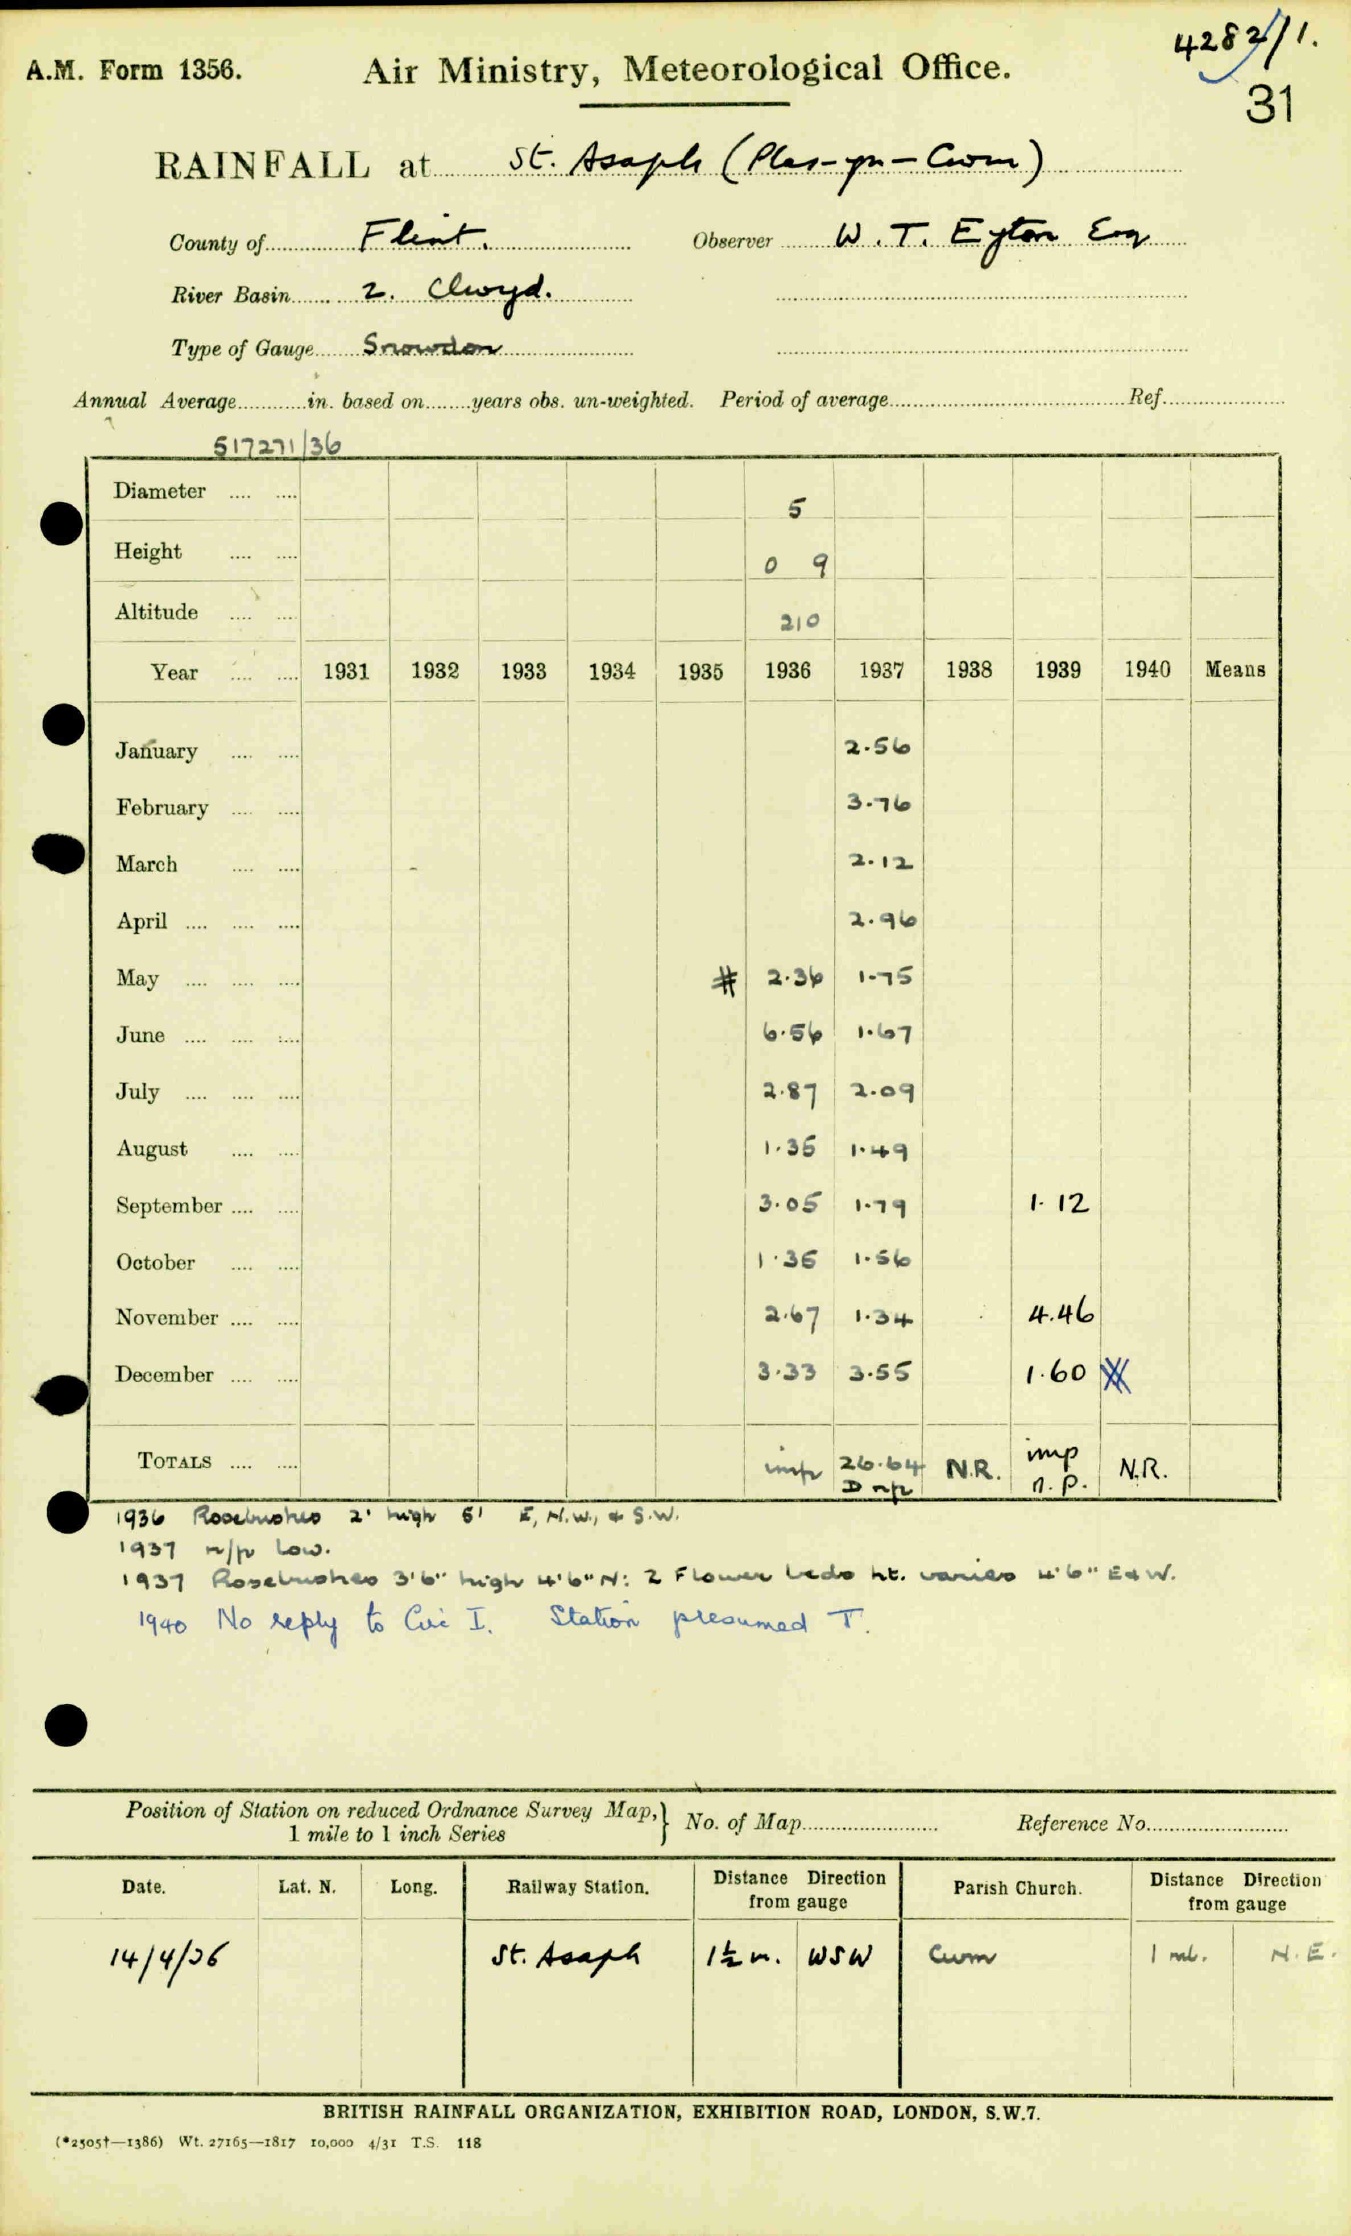 4282/1.
A.M. Form 1356. Air Ministry, Meteorological Office.
31
RAINFALL at St. Asaph (Plas-yn-Cwm)
County of Flint. Observer W. T. Eyton Esq
River Basin 2. Clwyd.
Type of Gauge Snowdon
Annual Average in. based on years obs. un-weighted. Period of average Ref.
517271/36
Diameter 5
Height 0 9
Altitude 210
Year 1931 1932 1933 1934 1935 1936 1937 1938 1939 1940 Means
January 2.56
February 3.76
March 2.12
April 2.96
May # 2.36 1.75
June 6.56 1.67
July 2.87 2.09
August 1.35 1.49
September 3.05 1.79 1.12
October 1.36 1.56
November 2.67 1.34 4.46
December 3.33 3.55 1.60
TOTALS imp 26.64 N.R. imp N.R.
D n/p n.p.
1936 Rosebushes 2' high 5' E, N.W., & S.W.
1937 n/p low.
1937 Rosebushes 3'6" high 4'6" N: 2 Flower beds ht. varies 4'6" E & W.
1940 No reply to Circ I. Station presumed T.
Position of Station on reduced Ordnance Survey Map, } No. of Map Reference No.
1 mile to 1 inch Series
Date. Lat. N. Long. Railway Station. Distance Direction from gauge Parish Church. Distance Direction from gauge
14/4/36 St. Asaph 1½ m. WSW Cwm 1 ml. N.E.
BRITISH RAINFALL ORGANIZATION, EXHIBITION ROAD, LONDON, S.W.7.
(*2505†—1386) Wt. 27165—1817 10,000 4/31 T.S. 118